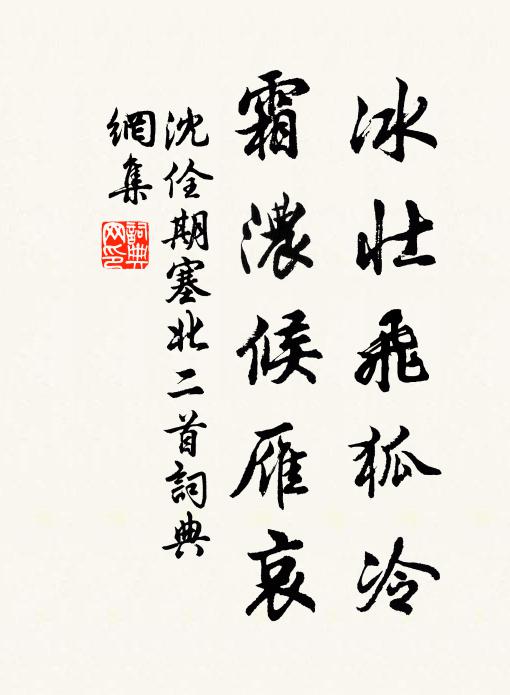 冰壯飛狐冷
霜濃候雁哀
沈佺期塞北二首詞典
網集
詞典
网印